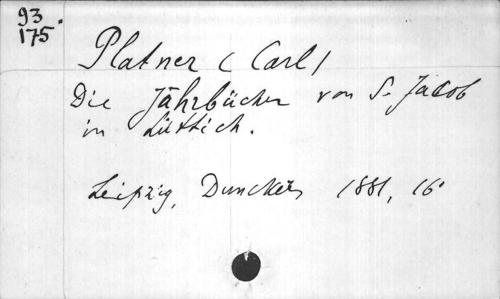 93.
175
Platner (Carl)
Die Jahrbücher von S. Jacob
in Lüttich.
Leipzig, Duncker, 1881, 16°